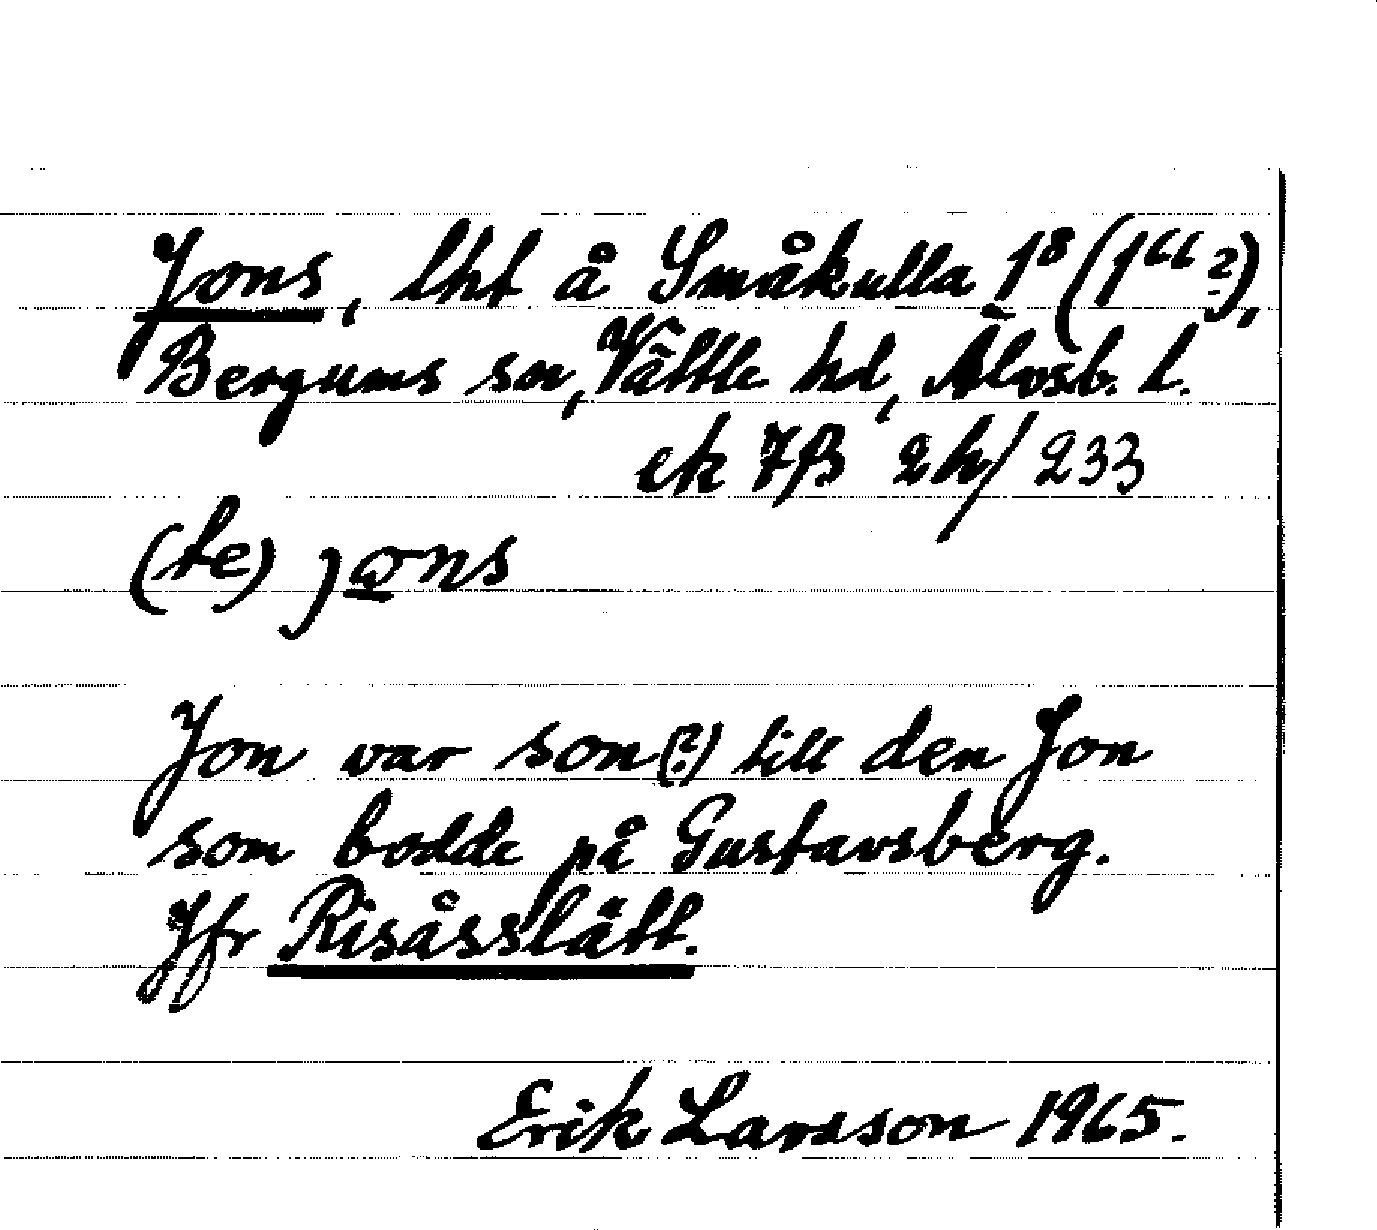 Jons, lht å Småkulla 1⁸ (1⁶⁶ ?),
Bergums sn, Vättle hd, Älvsb. l.
ek 7B 2h/233
(te) jo̱ns
Jon var son(?) till den Jon
som bodde på Gustavsberg.
Jfr Risåsslätt.
Erik Larsson 1965.